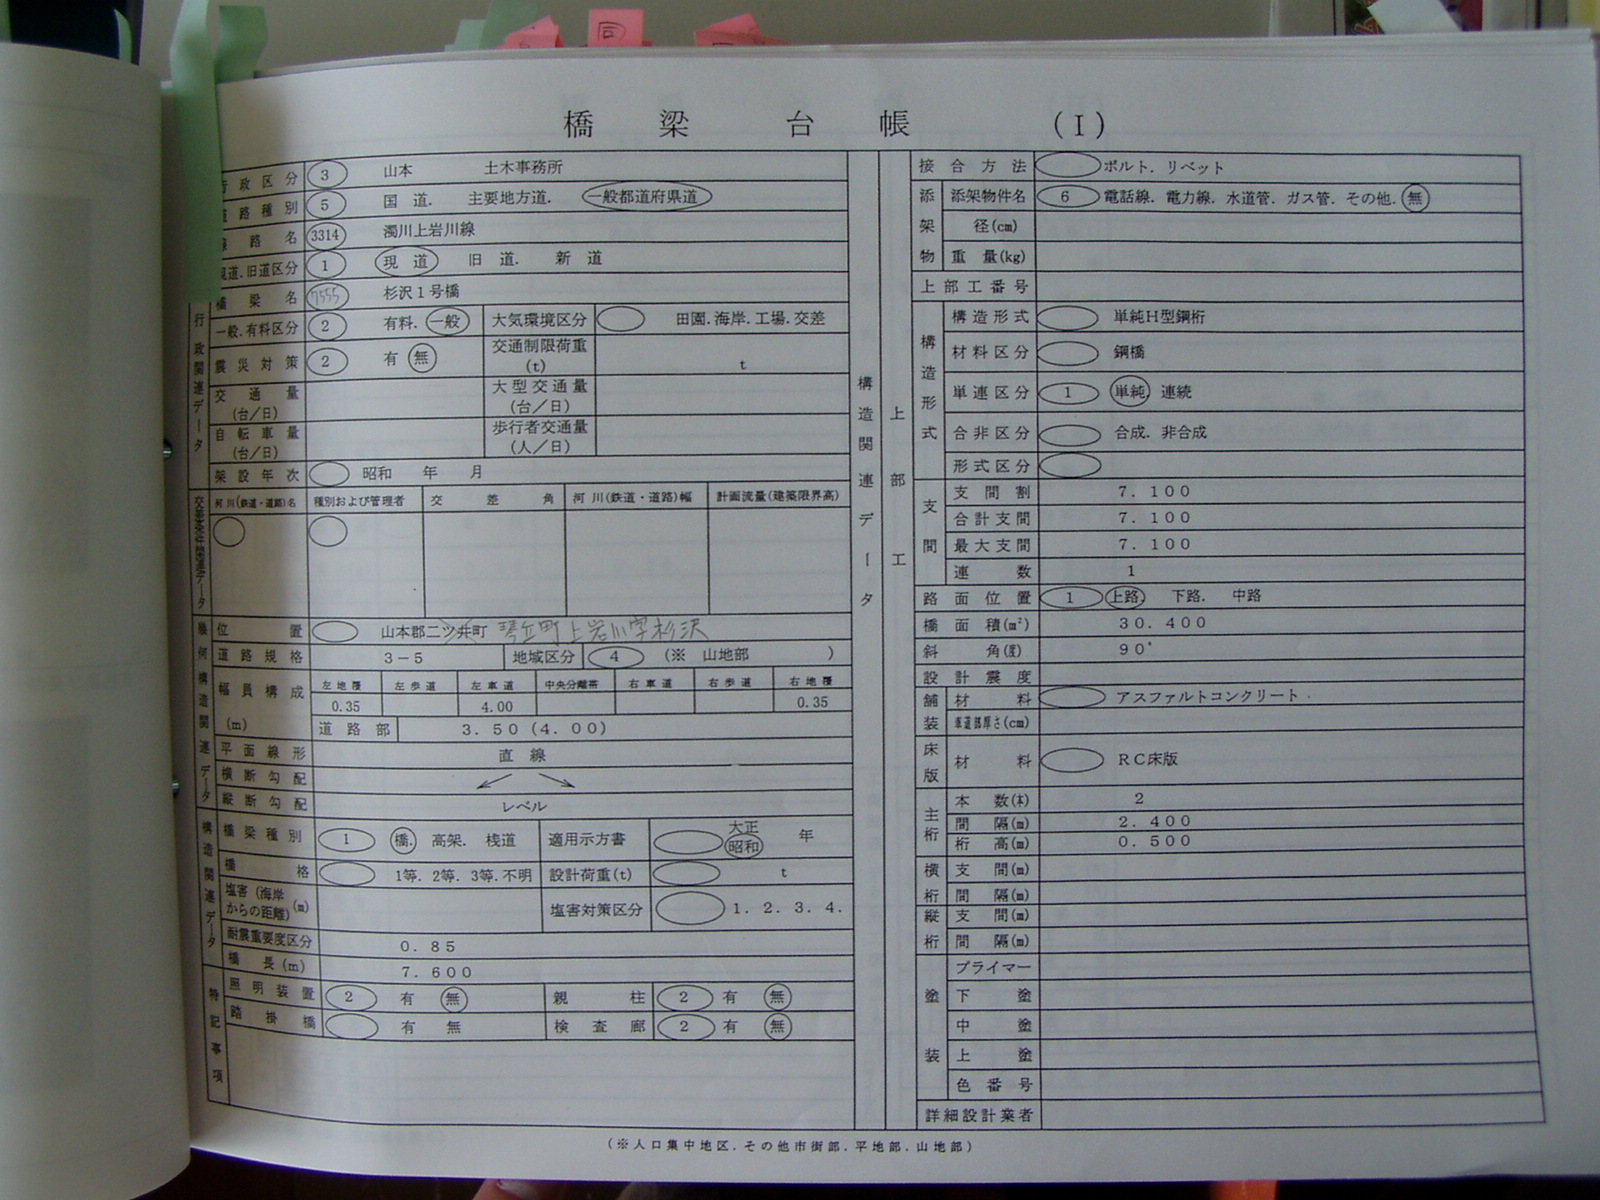 同
橋梁台帳 (I)
行政区分 3 山本 土木事務所
道路種別 5 国道. 主要地方道. 一般都道府県道
路線名 3314 濁川上岩川線
現道.旧道区分 1 現道 旧道. 新道
橋梁名 7555 杉沢1号橋
行政関連データ
一般.有料区分 2 有料. 一般 大気環境区分 田園.海岸.工場.交差
震災対策 2 有 無 交通制限荷重(t) t
交通量(台/日) 大型交通量(台/日)
自転車量(台/日) 歩行者交通量(人/日)
架設年次 昭和 年 月
交差条件関連データ
河川(鉄道・道路)名 種別および管理者 交差角 河川(鉄道・道路)幅 計画流量(建築限界高)
幾何構造関連データ
位置 山本郡二ツ井町 琴丘町上岩川字杉沢
道路規格 3-5 地域区分 4 (※ 山地部 )
幅員構成(m) 左地覆 左歩道 左車道 中央分離帯 右車道 右歩道 右地覆
0.35 4.00 0.35
道路部 3.50(4.00)
平面線形 直線
横断勾配
縦断勾配 レベル
構造関連データ
橋梁種別 1 橋. 高架. 桟道 適用示方書 大正 昭和 年
橋格 1等. 2等. 3等. 不明 設計荷重(t) t
塩害(海岸からの距離)(m) 塩害対策区分 1. 2. 3. 4.
耐震重要度区分 0.85
橋長(m) 7.600
特記事項
照明装置 2 有 無 親柱 2 有 無
踏掛橋 有 無 検査廊 2 有 無
構造関連データ
上部工
接合方法 ボルト. リベット
添架物 添架物件名 6 電話線. 電力線. 水道管. ガス管. その他. 無
径(cm)
重量(kg)
上部工番号
構造形式
構造形式 単純H型鋼桁
材料区分 鋼橋
単連区分 1 単純. 連続
合非区分 合成. 非合成
形式区分
支間
支間割 7.100
合計支間 7.100
最大支間 7.100
連数 1
路面位置 1 上路. 下路. 中路
橋面積(m²) 30.400
斜角(度) 90°
設計震度
舗装 材料 アスファルトコンクリート
車道部厚さ(cm)
床版 材料 RC床版
主桁 本数(本) 2
間隔(m) 2.400
桁高(m) 0.500
横桁 支間(m)
間隔(m)
縦桁 支間(m)
間隔(m)
塗装
プライマー
下塗
中塗
上塗
色番号
詳細設計業者
(※人口集中地区. その他市街部. 平地部. 山地部)